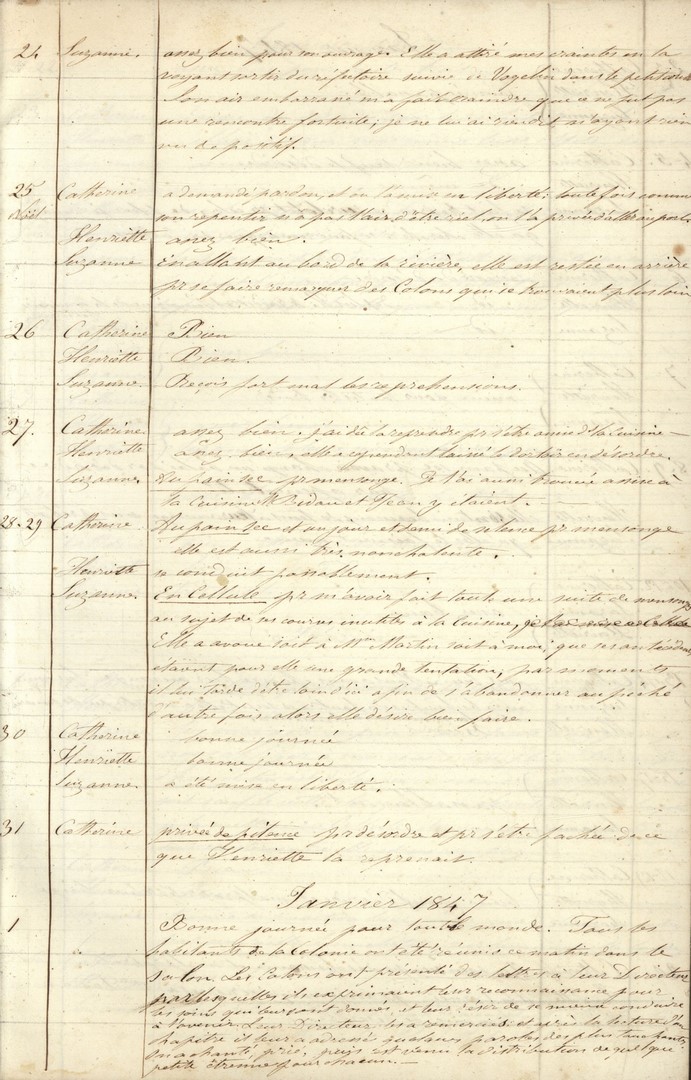 24 Suzanne. assez bien pour son ouvrage. Elle a attiré mes craintes en la
voyant sortir du réfectoire suivie de Vogelin dans le petit
Son air embarrassé m'a fait craindre que ce ne fut pas
une rencontre fortuite; je ne lui ai rien dit n'ayant rien
vu de positif.
25 Catherine a demandé pardon, et on l'a mise en liberté; toutefois comme
Noël son repentir n'a pas l'air d'être réel on l'a privée d'aller au
Henriette assez bien.
Suzanne en allant au bord de la rivière, elle est restée en arrière
pr se faire remarquer des Colons qui se trouvaient plus loin
26 Catherine Bien
Henriette Bien.
Suzanne. Reçois fort mal les reprehensions.
27. Catherine assez bien. j'ai dû la reprendre pr s'être assise ds la Cuisine
Henriette assez bien, elle a cependant laissé le dortoir en désordre.
Suzanne. Au pain sec pr mensonge. Je l'ai aussi trouvée assise à
la Cuisine et Jean y étaient.
28-29 Catherine Au pain sec et un jour et demi de silence pr mensonge
elle est aussi très nonchalente.
Henriette se conduit passablement.
Suzanne. En Cellule pr m'avoir fait toute une suite de mensonges
au sujet de ses courses inutiles à la Cuisine,
Elle a avoué soit à Mme Martin soit à moi, que ses
étaient pour elle une grande tentation, par moments
il lui tarde d'être loin d'ici afin de s'abandonner au péché
d'autre fois alors elle désire bien faire.
30 Catherine bonne journée
Henriette bonne journée
Suzanne. a été mise en liberté.
31 Catherine privée de pitance pr désordre et pr s'être fachée de ce
que Henriette la reprenait.
Janvier 1847
1 Bonne journée pour tout le monde. Tous les
habitants de la Colonie ont été réunis ce matin dans le
Salon. Les Colons ont présenté des lettres à leur Directeur
par lesquelles ils exprimaient leur reconnaissance pour
les soins qui leur sont donnés, et leur désir de se mieux conduire
à l'avenir. Leur Directeur les a remerciés et après la lecture d'un
chapitre il leur a adressé quelques paroles des plus touchantes,
On a chanté, prié, puis est venu la distribution de quelque
petite étrenne pour chacun.